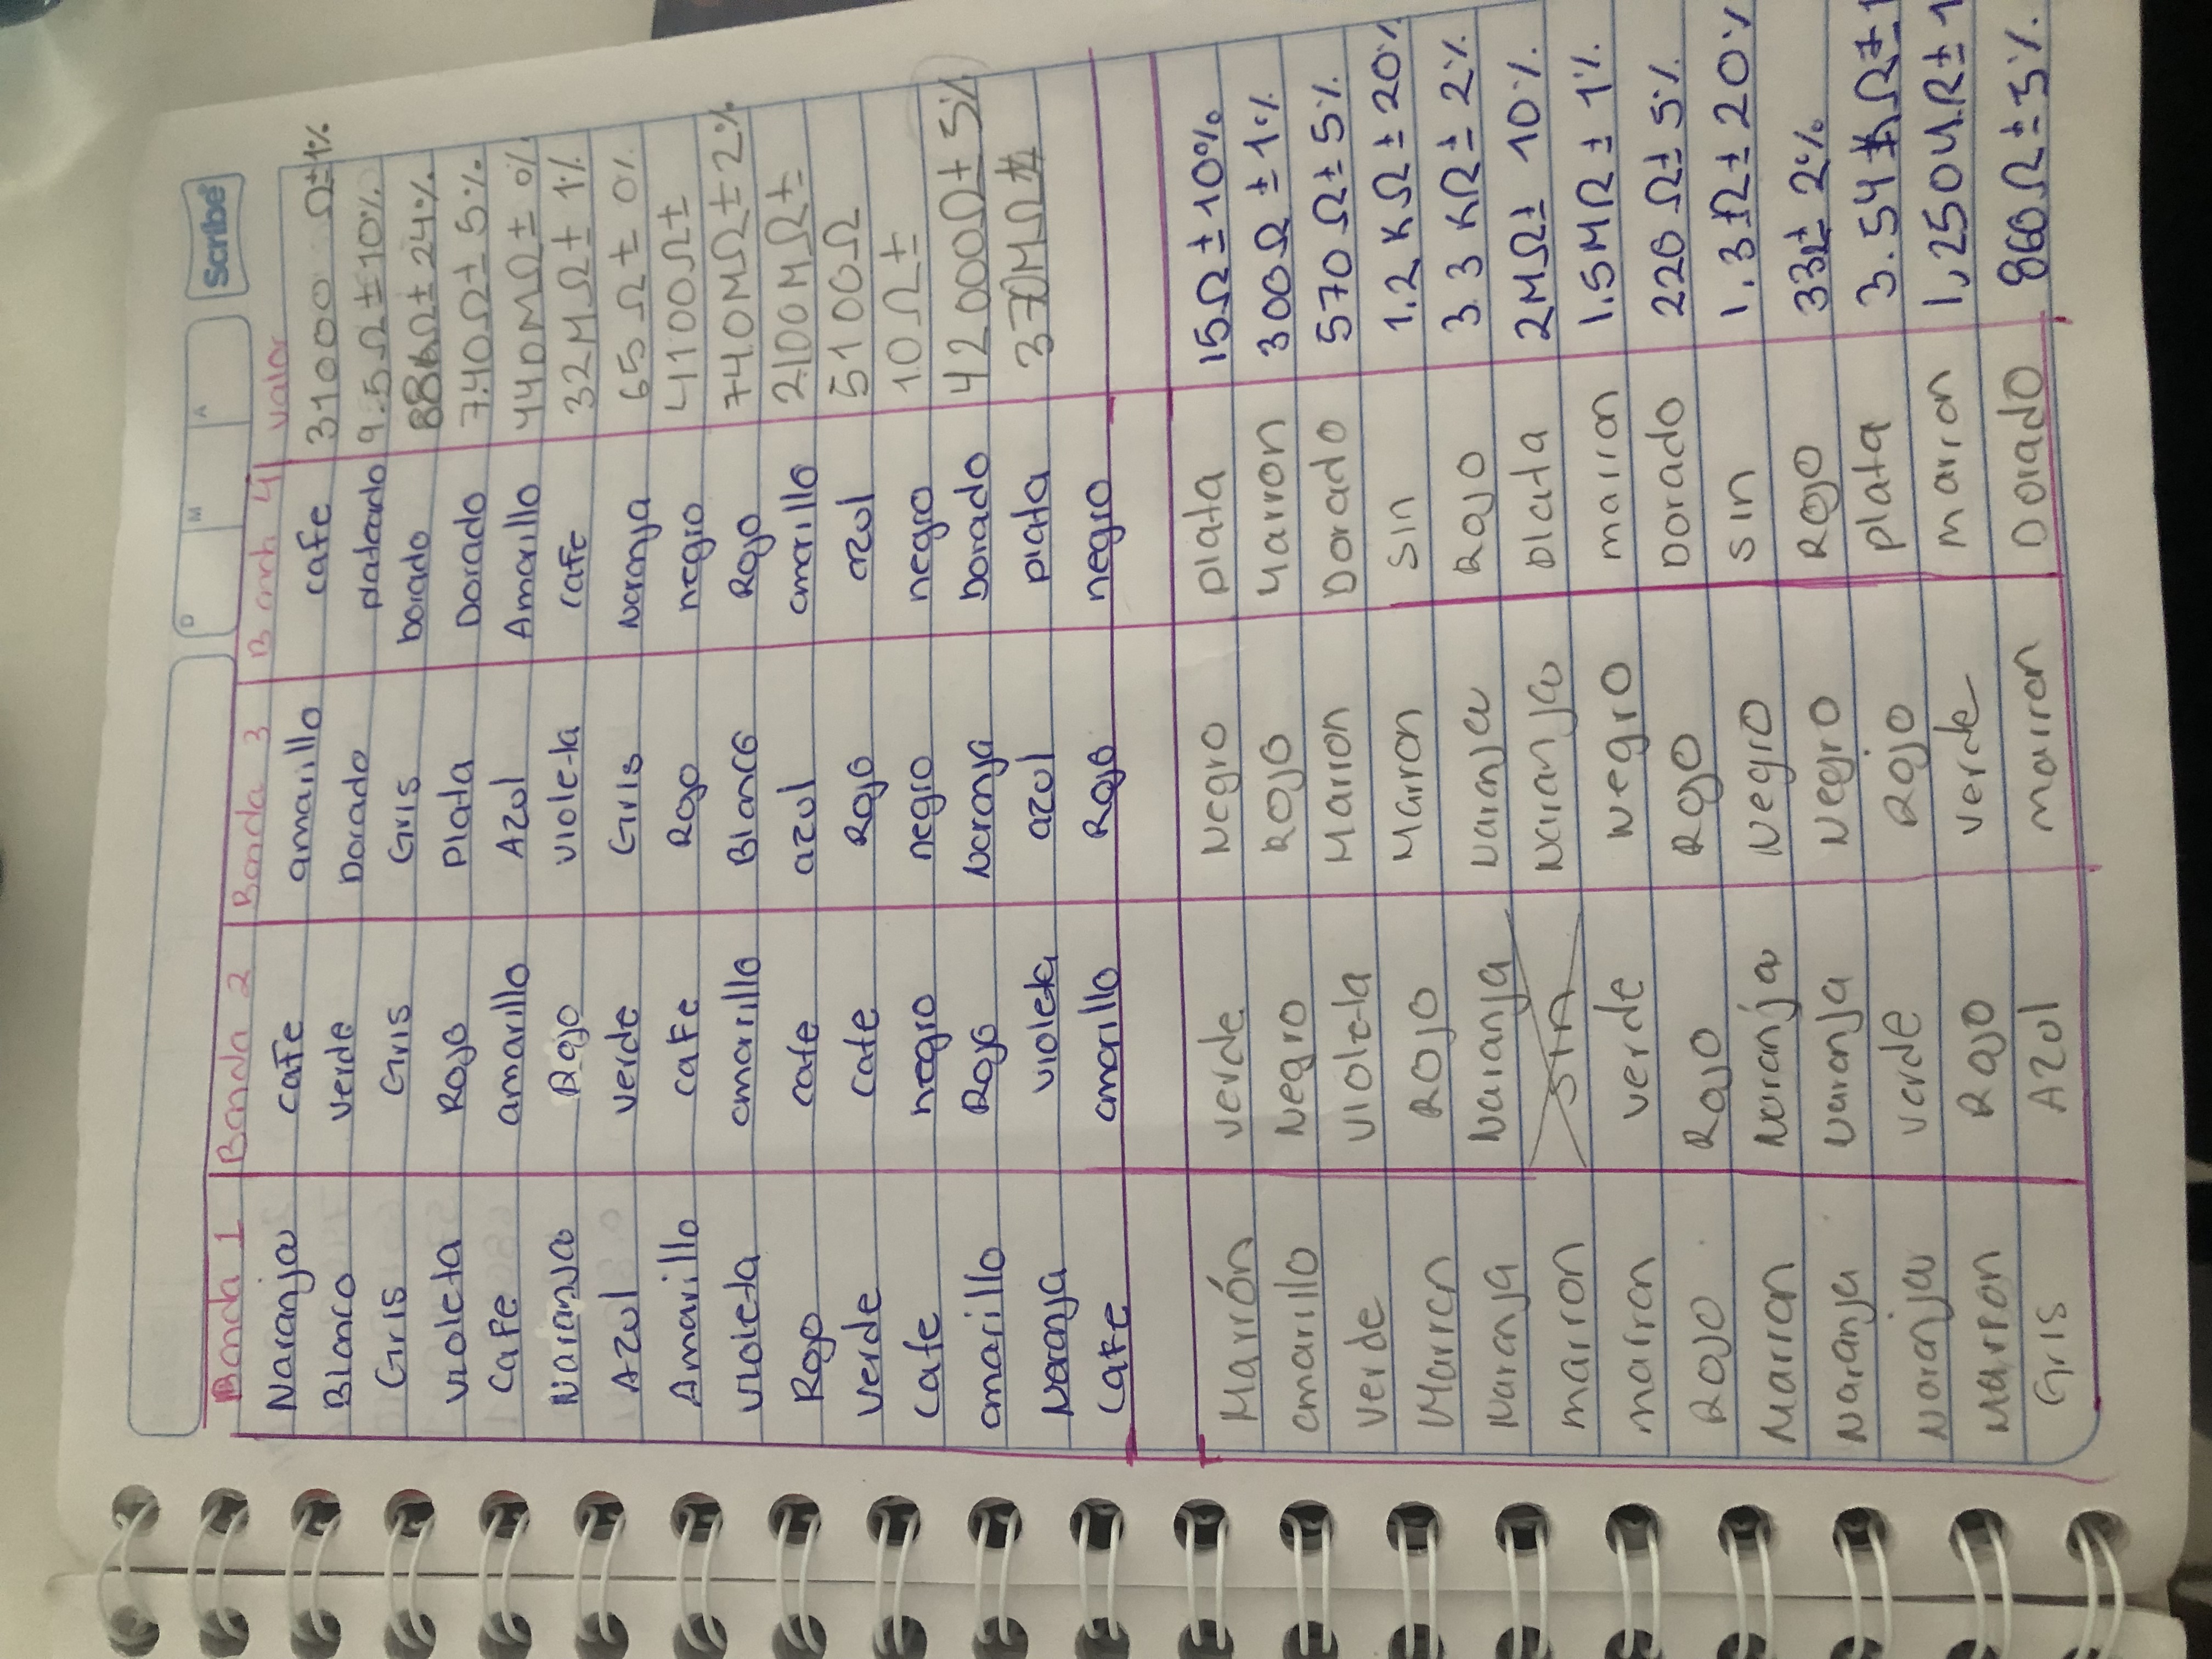 Scribe
D M A
Banda 1 Banda 2 Banda 3 Banda 4 valor
Naranja cafe amarillo cafe 310000 Ω±1%
Blanco verde Dorado plateado 9.5Ω±10%
Gris Gris Gris dorado Ω±24%
violeta Rojo Plata Dorado 7.40Ω±5%
cafe amarillo Azul Amarillo 440MΩ± 0%
Naranja Rojo violeta cafe 32MΩ± 1%
Azul verde Gris Naranja 65Ω± 0%
Amarillo cafe Rojo negro 4100Ω±
violeta amarillo Blanco Rojo 740MΩ±2%
Rojo cafe azul amarillo 2100MΩ±
verde cafe Rojo azul 5100Ω
cafe negro negro negro 10Ω±
amarillo Rojo Naranja Dorado 42000Ω±5%
Naranja violeta azul plata 370MΩ
cafe amarillo Rojo negro
Marrón verde Negro plata 15Ω±10%
amarillo Negro Rojo Marron 300Ω±1%
verde violeta Marron Dorado 570Ω±5%
Marron Rojo Marron sin 1.2KΩ±20%
Naranja Naranja Naranja Rojo 3.3KΩ±2%
marron sin Naranja plata 2MΩ± 10%
marron verde Negro marron 1.5MΩ± 1%
Rojo Rojo Rojo Dorado 220Ω±5%
Marron Naranja Negro sin 1.3Ω±20%
Naranja Naranja Negro Rojo 33Ω± 2%
Naranja verde Rojo plata 3.54 Ω±1
Marron Rojo verde marron 1,250M.Ω±1
Gris Azul marron Dorado 860Ω±5%.